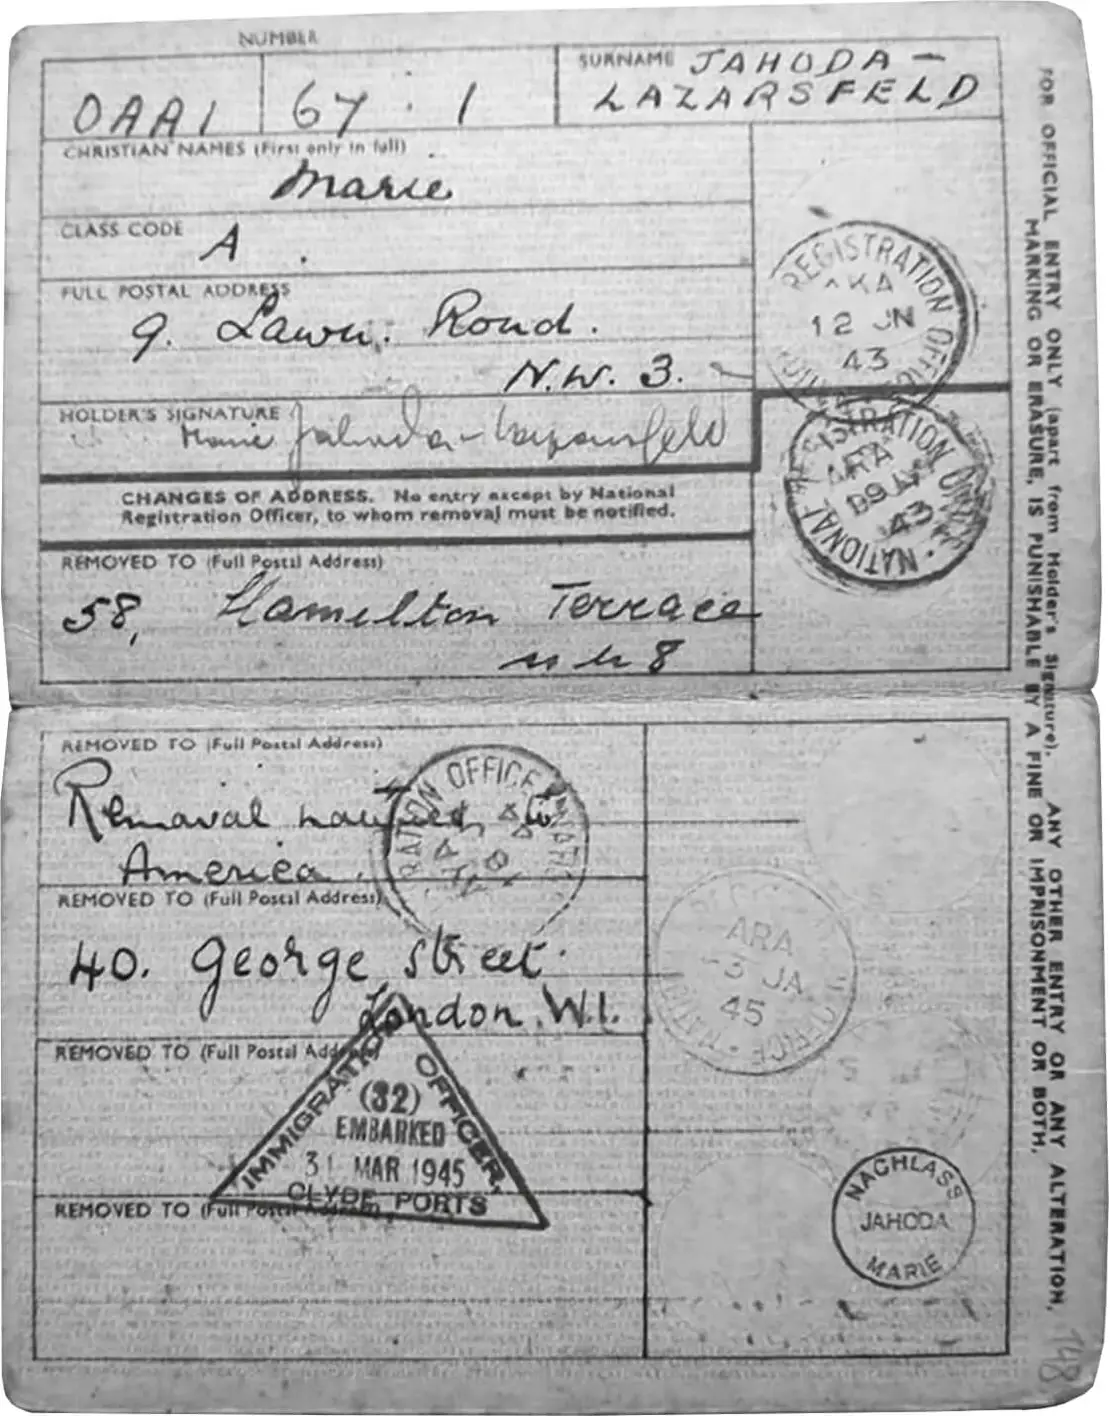 NUMBER
OAAI 67 . 1
SURNAME JAHODA -
LAZARSFELD
CHRISTIAN NAMES (First only in full)
Marie
CLASS CODE A
FULL POSTAL ADDRESS
9. Lawn. Road.
N.W. 3.
REGISTRATION OFFICE
12 JN
43
HOLDER'S SIGNATURE
Marie Jahoda-Lazarsfeld
CHANGES OF ADDRESS. No entry except by National
Registration Officer, to whom removal must be notified.
NATIONAL REGISTRATION OFFICE
ARA
REMOVED TO (Full Postal Address)
58, Hamilton Terrace
N W 8
REMOVED TO (Full Postal Address)
Removal notified to
America.
OFFICE
REMOVED TO (Full Postal Address)
40. George Street.
London. W.1.
ARA
3 JA
45
REMOVED TO (Full Postal Address)
IMMIGRATION OFFICER,
(32)
EMBARKED
31 MAR 1945
CLYDE PORTS
REMOVED TO (Full Postal Address)
NACHLASS
JAHODA
MARIE
FOR OFFICIAL ENTRY ONLY (apart from Holder's Signature). ANY OTHER ENTRY OR ANY ALTERATION,
MARKING OR ERASURE, IS PUNISHABLE BY A FINE OR IMPRISONMENT OR BOTH.
148